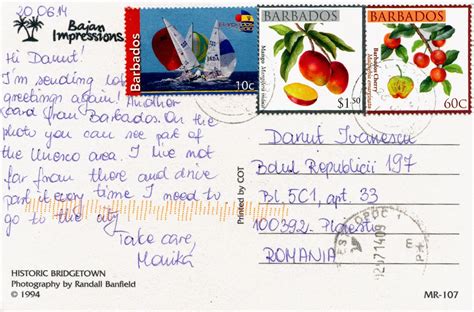 20.06.14
Bajan
Impressions
Hi Danut!
I'm sending lots
greetings again! Another
card from Barbados. On the
photo you can see part of
the Unesco area. I live not
far from there and drive
past it every time I need to
go to the city
Take care,
Monika
HISTORIC BRIDGETOWN
Photography by Randall Banfield
© 1994
Printed by COT
Barbados
10c
BARBADOS
Mango
$1.50
BARBADOS
Barbados Cherry
60c
Danut Ivanescu
Bdul Republicii 197
Bl. 5C1, apt. 33
100392 - Ploiesti
ROMANIA
MR-107